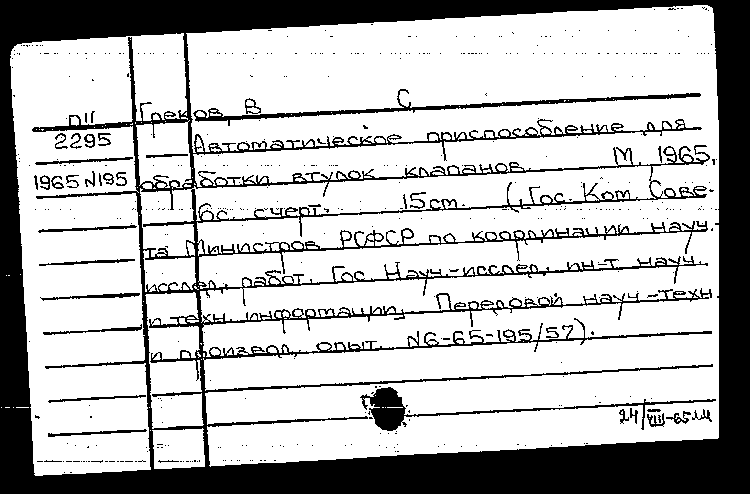 П11 Греков, В С.
2295 Автоматическое приспособление для
1965 N195 обработки втулок клапанов. М, 1965,
6с. с черт. 15 cm. (Гос. Ком. Сове-
та Министров РСФСР по координации науч.-
исслед, работ. Гос. Науч.-исслед, ин-т науч.
и техн информации, Передовой науч-техн
и производ, опыт. N6-65-195/57).
24/VIII-65